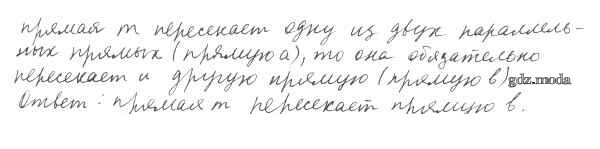 прямая m пересекает одну из двух параллель-
ных прямых (прямую a), то она обязательно
пересекает и другую прямую (прямую b) gdz.moda
Ответ: прямая m пересекает прямую b.